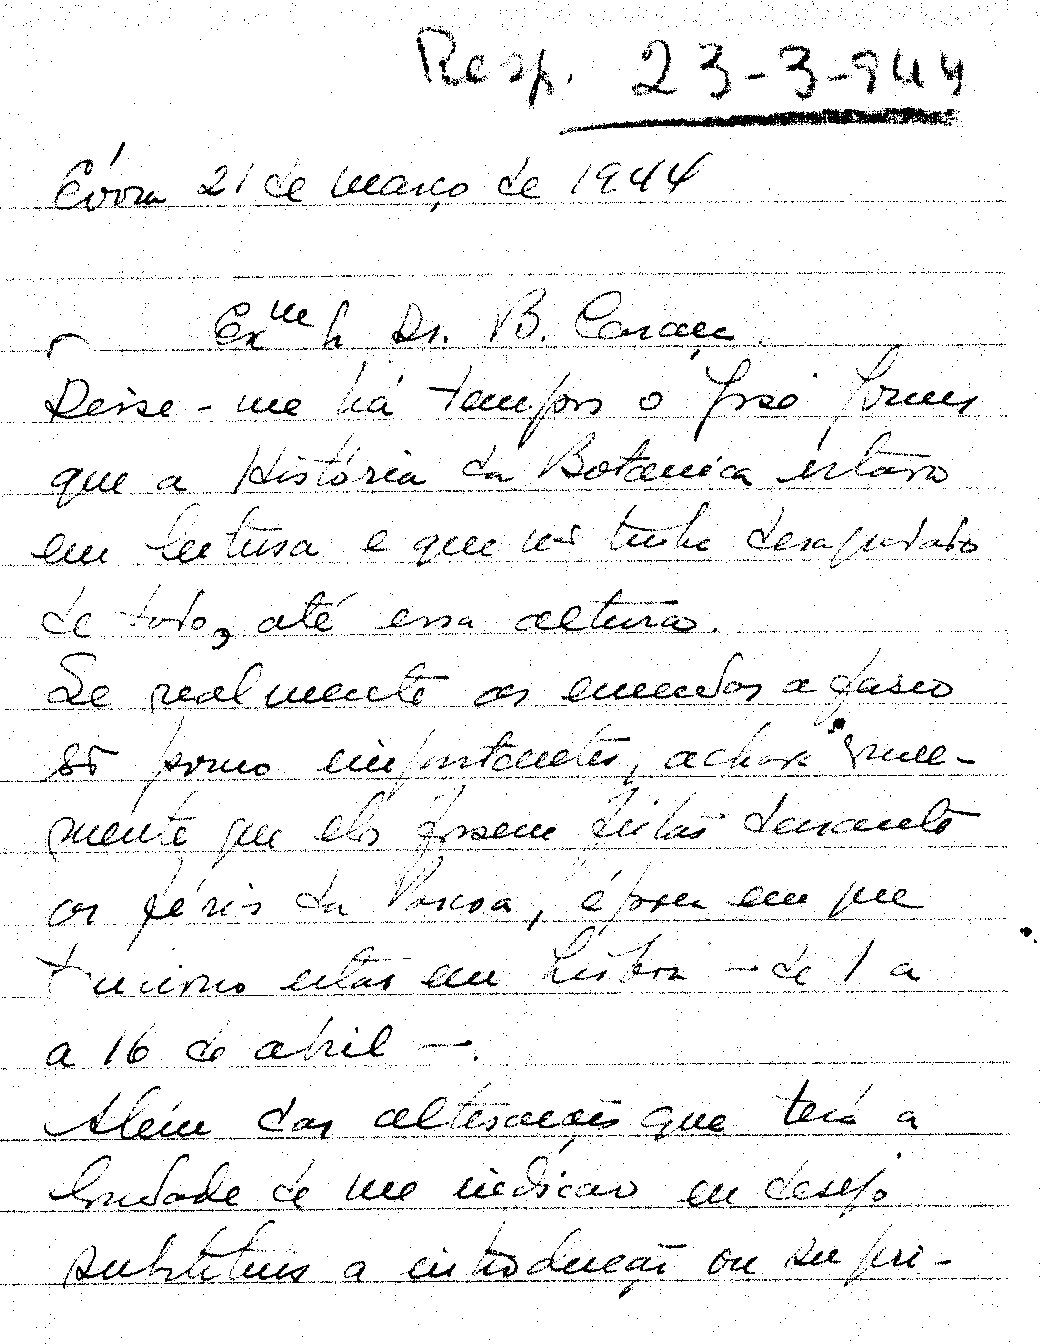 Resp. 23-3-944
Évora 21 de março de 1944
Exmº Sr. Dr. B. Caraça
Disse-me há tempos o José Gomes
que a História da Botanica estava
em leitura e que não tinha desagradado
de todo, até essa altura.
Se realmente as emendas a fazer
são pouco importantes, achava
que elas fossem feitas durante
as férias da Pascoa, época em que
tenciono estar em Lisboa — de 1 a
a 16 de abril —.
Além das alterações que terá a
bondade de me indicar eu desejo
substituir a introdução ou supri-